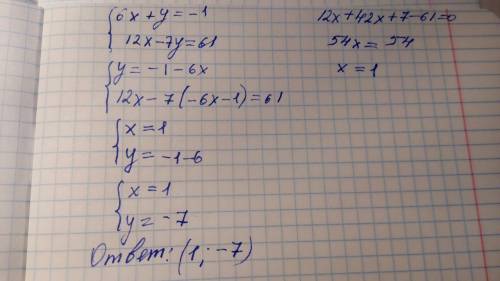 6x + y = -1
12x - 7y = 61
y = -1 - 6x
12x - 7(-6x - 1) = 61
x = 1
y = -1 - 6
x = 1
y = -7
Ответ: (1; -7)
12x + 42x + 7 - 61 = 0
54x = 54
x = 1